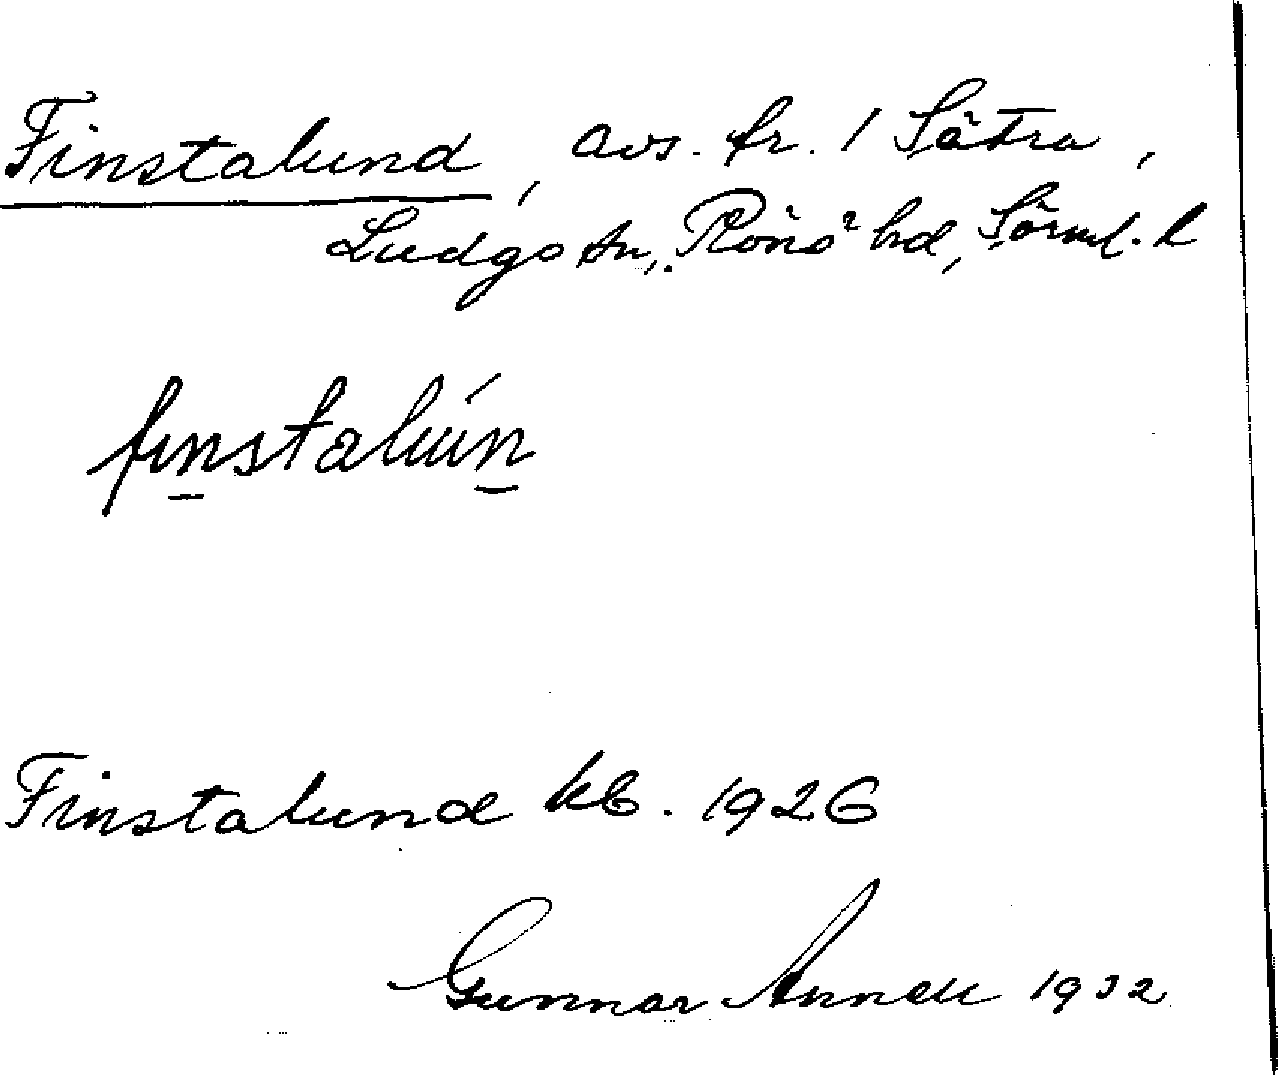 Finstalund, avs. fr. 1 Sätra,
Ludgo sn, Rönö hd, Sörml. l
finstalún
Finstalund kb. 1926
Gunnar Annell 1932